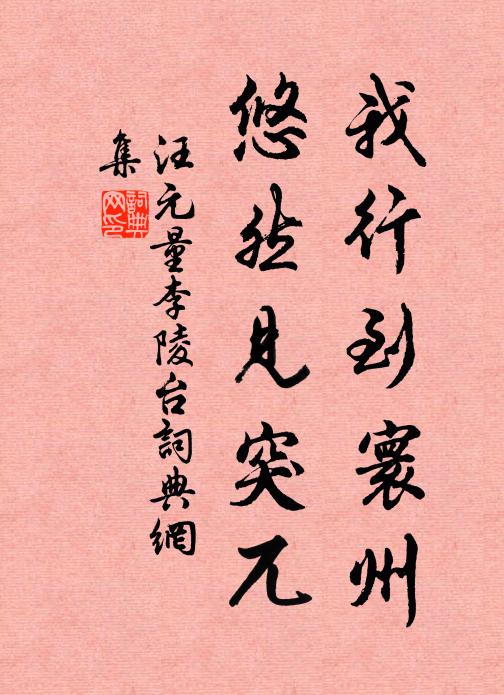 我行到寰州
悠然見突兀
汪元量李陵台詞典網
集
詞典网印